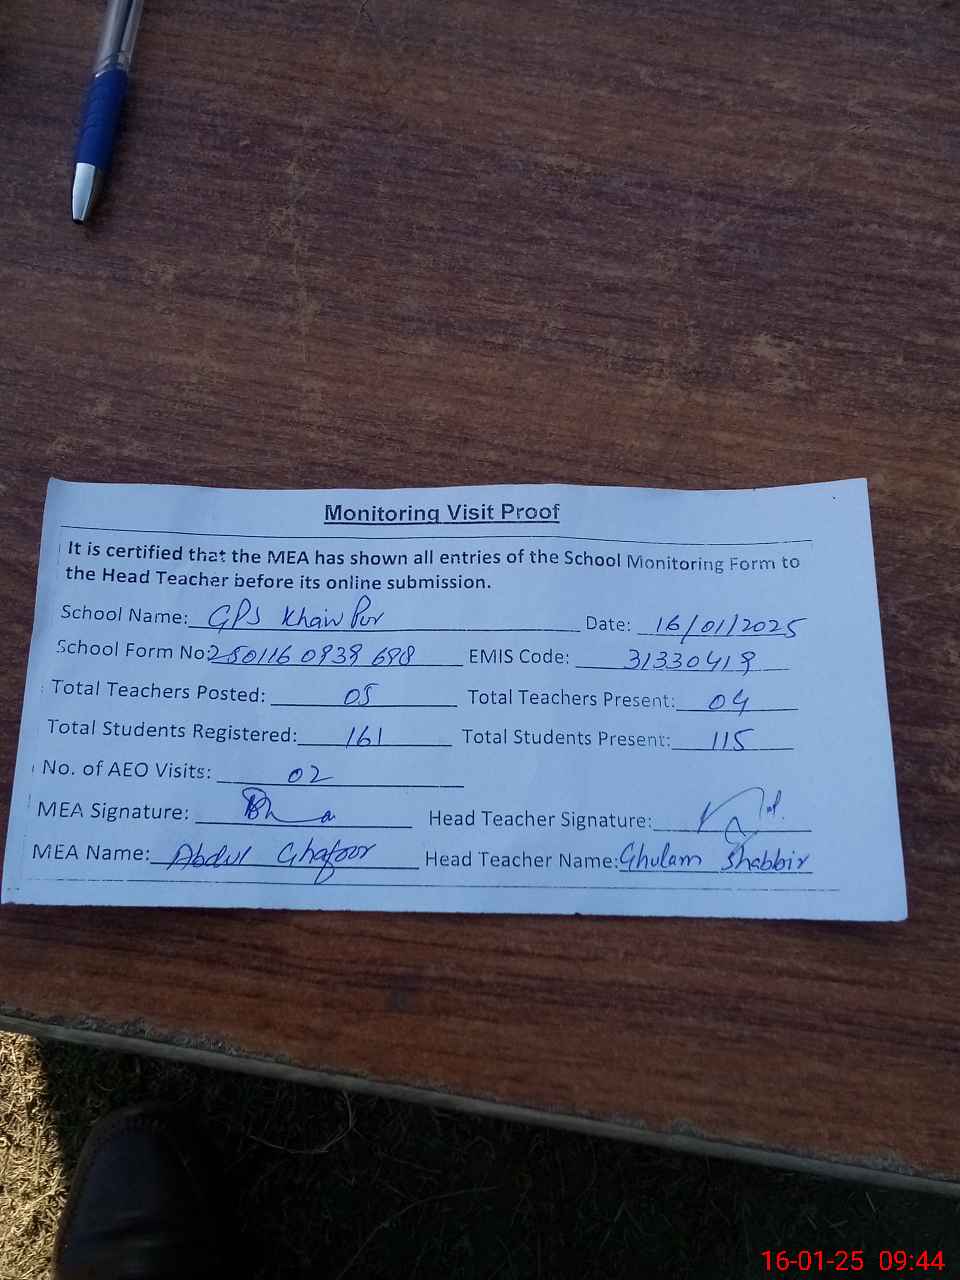 Monitoring Visit Proof
It is certified that the MEA has shown all entries of the School Monitoring Form to
the Head Teacher before its online submission.
School Name: GPS Khair Pur Date: 16/01/2025
School Form No: EMIS Code: 31330419
Total Teachers Posted: 05 Total Teachers Present: 04
Total Students Registered: 161 Total Students Present: 115
No. of AEO Visits: 02
MEA Signature: Head Teacher Signature:
MEA Name: Abdul Ghafoor Head Teacher Name: Ghulam Shabbir
16-01-25 09:44